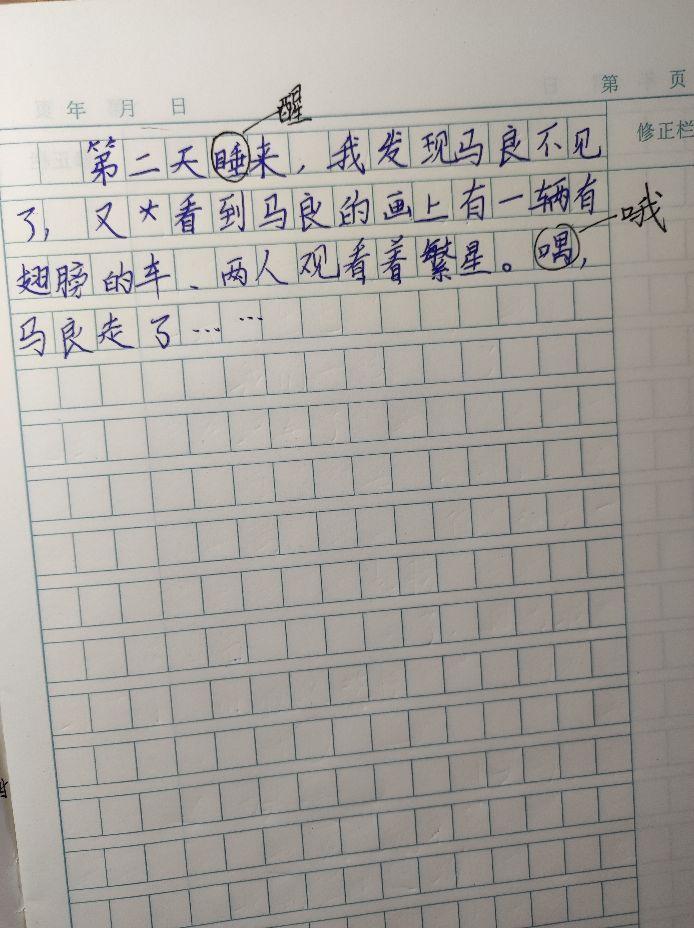 年 月 日
第 页
修正栏
醒
第二天睡来，我发现马良不见
了，又看到马良的画上有一辆有
哦
翅膀的车、两人观看着繁星。喁，
马良走了……